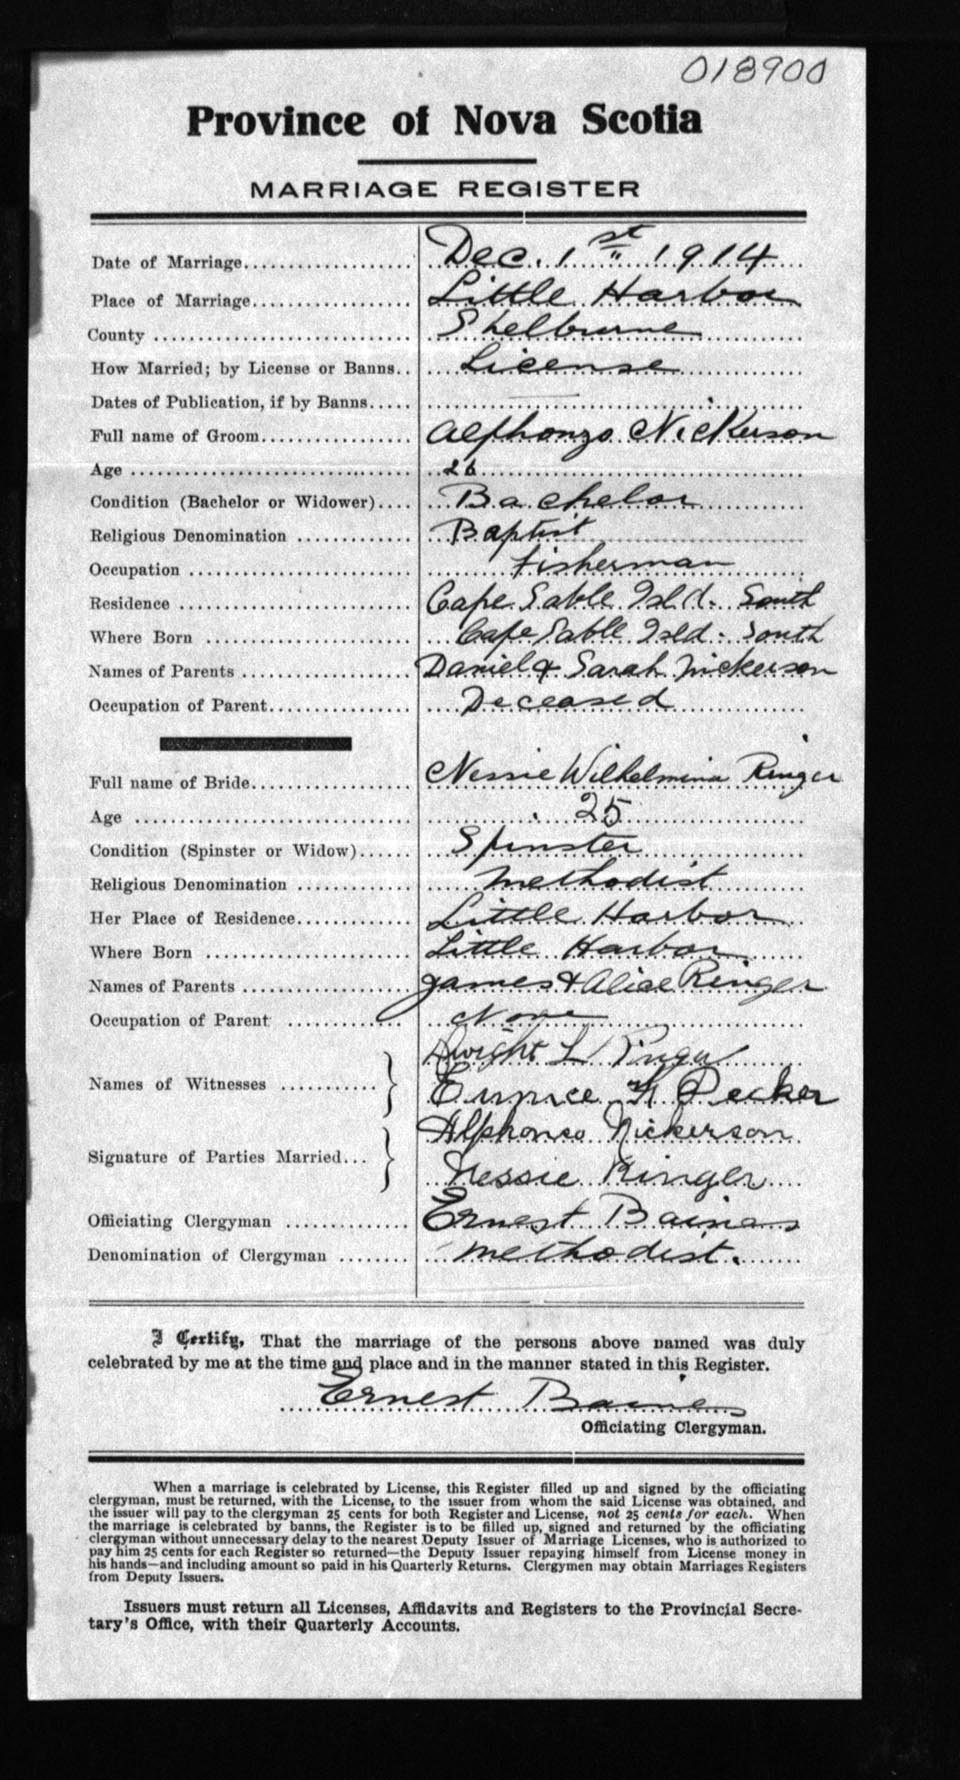 018900
Province of Nova Scotia
MARRIAGE REGISTER
Date of Marriage................... Dec. 1st " 1914
Place of Marriage.................. Little Harbor
County ............................. Shelburne
How Married; by License or Banns.. License
Dates of Publication, if by Banns.....
Full name of Groom................. Alphonzo Nickerson
Age ................................ 26
Condition (Bachelor or Widower).... Bachelor
Religious Denomination ............. Baptist
Occupation ......................... fisherman
Residence .......................... Cape Sable Isld. South
Where Born ....................... Cape Sable Isld. South
Names of Parents ................... Daniel & Sarah Nickerson
Occupation of Parent................ Deceased
Full name of Bride.................. Nessie Wilhelmina Ringer
Age ................................ 25
Condition (Spinster or Widow)...... Spinster
Religious Denomination ............. Methodist
Her Place of Residence............. Little Harbor
Where Born ....................... Little Harbor
Names of Parents ................... James & Alice Ringer
Occupation of Parent .............. None
Dwight L Ringer
Names of Witnesses ........... } Eunice Decker
Alphonso Nickerson
Signature of Parties Married... }
Nessie Ringer
Officiating Clergyman .............. Ernest Baines
Denomination of Clergyman ........ Methodist.
I Certify, That the marriage of the persons above named was duly
celebrated by me at the time and place and in the manner stated in this Register.
Ernest Baines
Officiating Clergyman.
When a marriage is celebrated by License, this Register filled up and signed by the officiating
clergyman, must be returned, with the License, to the issuer from whom the said License was obtained, and
the issuer will pay to the clergyman 25 cents for both Register and License, not 25 cents for each. When
the marriage is celebrated by banns, the Register is to be filled up, signed and returned by the officiating
clergyman without unnecessary delay to the nearest Deputy Issuer of Marriage Licenses, who is authorized to
pay him 25 cents for each Register so returned—the Deputy Issuer repaying himself from License money in
his hands—and including amount so paid in his Quarterly Returns. Clergymen may obtain Marriages Registers
from Deputy Issuers.
Issuers must return all Licenses, Affidavits and Registers to the Provincial Secre-
tary's Office, with their Quarterly Accounts.